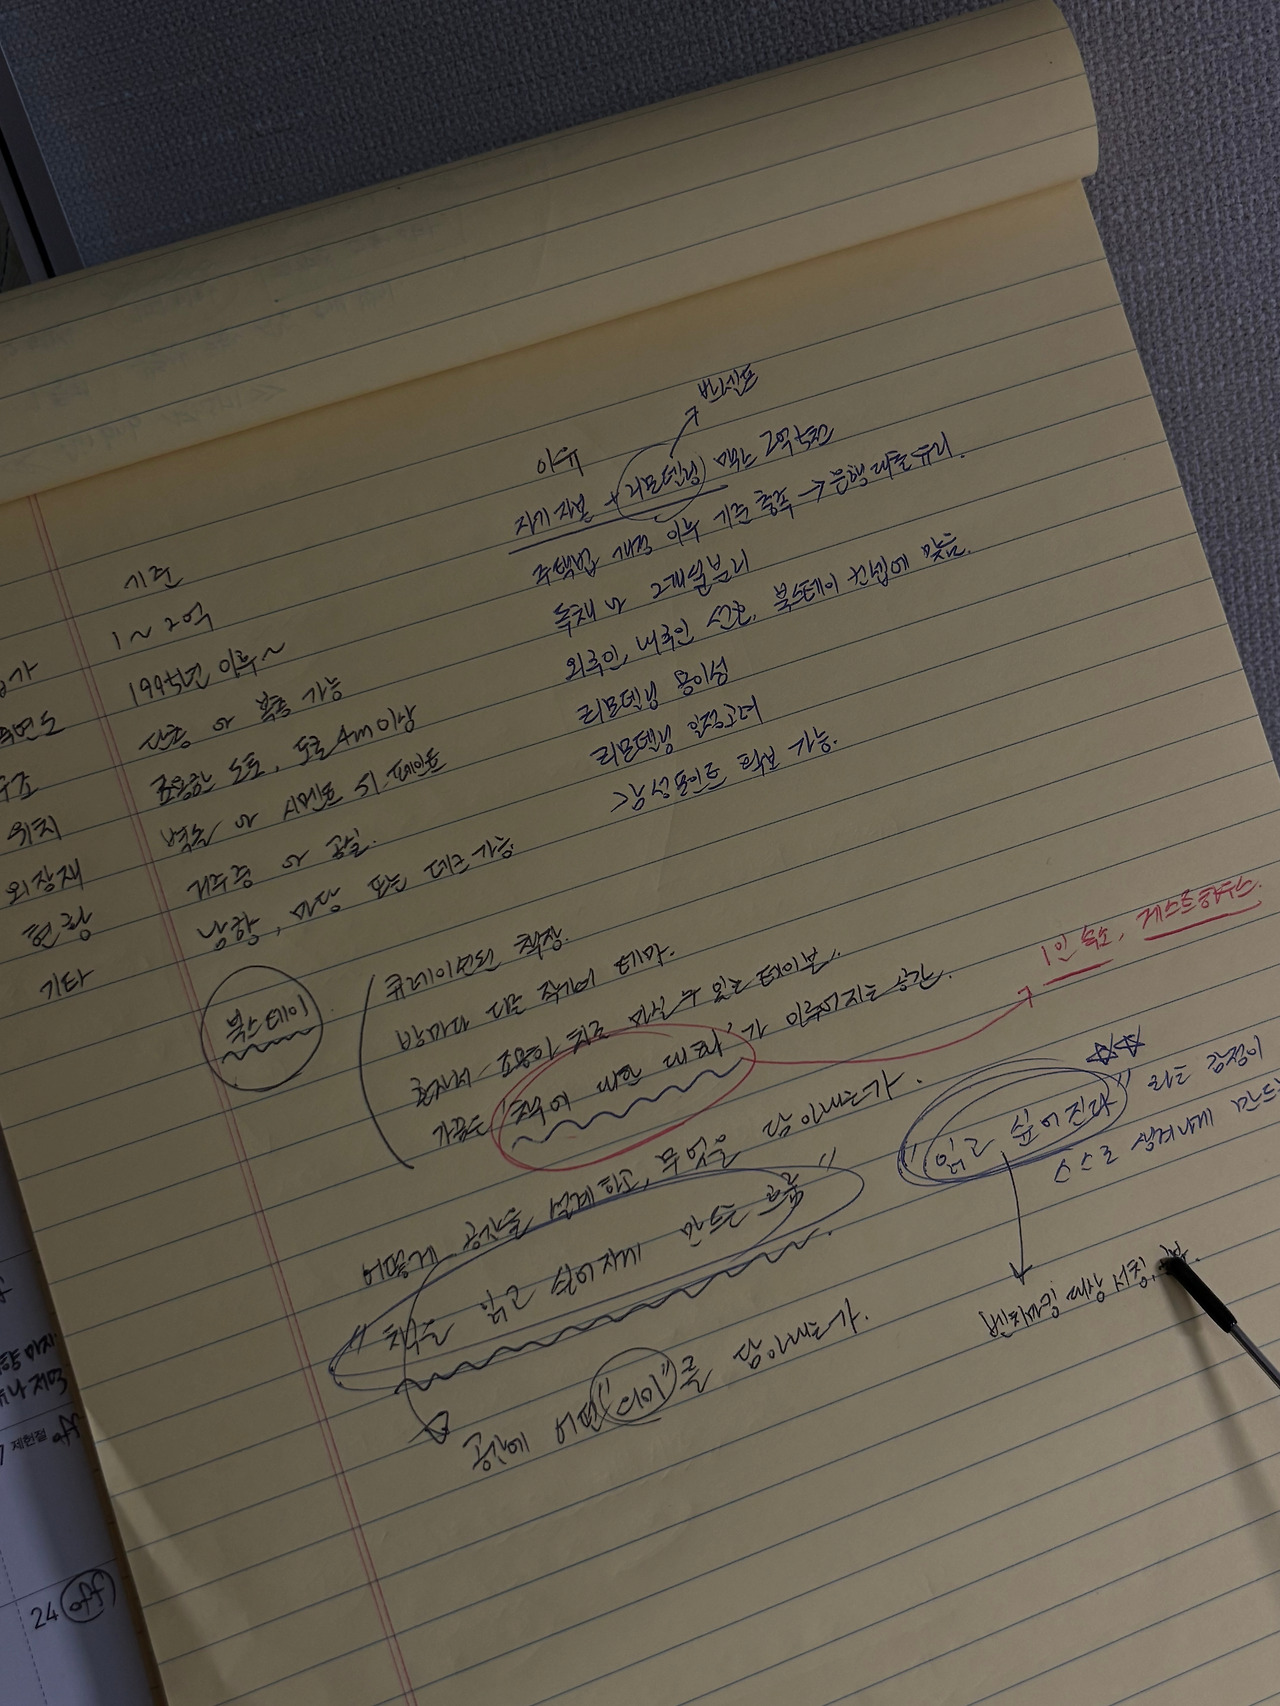 빈센트
기준 이유
가 1~2억 자기 자본 + 리모델링 맥스 2억 5천
축연도 1995년 이후~ 주택법 개정 이후 기준 충족 → 은행대출유리.
구조 단층 or 복층 가능 독채 or 2개실분리
위치 조용한 도로, 도로 4m 이상 외국인, 내국인 선호, 북스테이 컨셉에 맞음.
외장재 벽돌 or 시멘트 시.페인트 리모델링 용이성
현황 거주중 or 공실. 리모델링 일정고려
기타 남향, 마당 또는 데크가능. 감성포인트 확보 가능.
북스테이
큐레이션된 책장.
방마다 다른 작가의 테마.
혼자서 조용히 차를 마실 수 있는 테이블.
가끔은 '책에 대한 대화'가 이루어지는 공간.
1인 숙소, 게스트하우스.
어떻게 공간을 설계하고, 무엇을 담아내는가.
"책을 읽고 싶어지게 만드는 흐름"
공간에 어떤 "의미"를 담아내는가.
"읽고 싶어진다" 라는 감정이
스스로 생겨나게 만드는
벤치마킹 대상 서칭,
제헌절 off
24 off